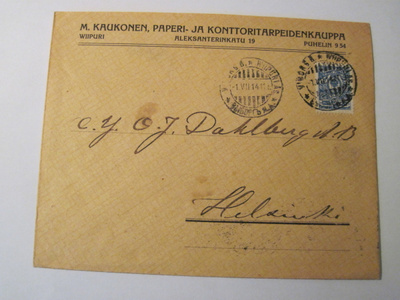 M. KAUKONEN, PAPERI- JA KONTTORITARPEIDENKAUPPA
WIIPURI ALEKSANTERINKATU 19 PUHELIN 9 54
O. J. Dahlberg A B
Helsinki